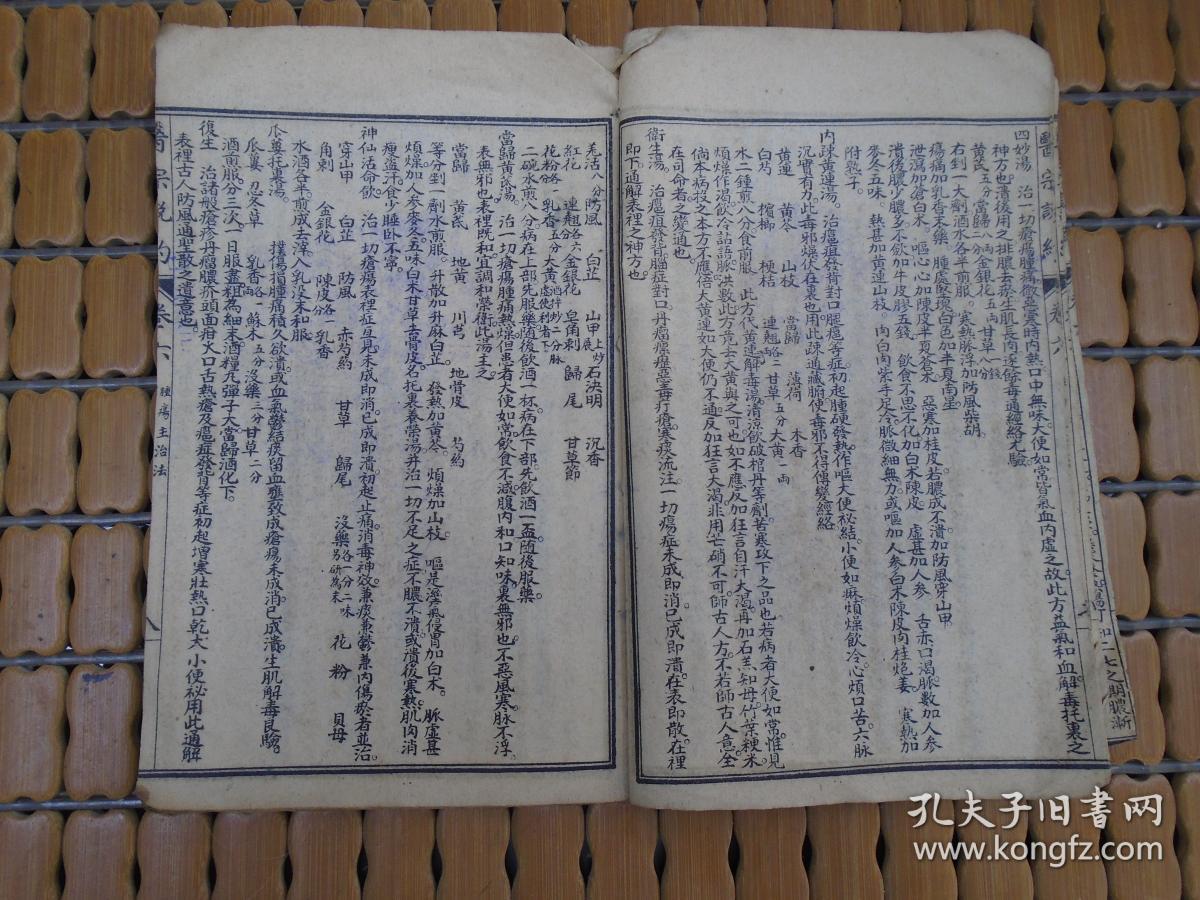 醫宗說約 卷六
四妙湯 治一切瘡瘍腫痛微盡寒時內熱口中無味大便如常皆氣血內虛之故此方益氣和血解毒托裏之
神方也潰後用之排膿去瘀生肌長肉遂條毒通經絡尤驗
黃芪五分 當歸一兩 金銀花五兩 甘草八錢
右剉一大劑酒水各半煎服 寒熱脈浮加防風柴胡
瘍痛加乳香末藥 腫處堅硬白色加半夏南星
泄瀉加蒼白朮 嘔心加陳皮半夏蒼朮 惡寒加桂皮若膿成不潰加防風穿山甲
潰後膿少膿多不斂加牛皮膠五錢 飲食不思不化加白朮陳皮 虛甚加人參 舌赤口渴脈數加人參
麥冬五味 熱甚加黃連山枝 肉白肉紫手足冷脈微細無力或嘔加人參白朮陳皮肉桂炮姜 寒熱加
附熟子
內疎黃連湯 治癰疽發背對口腿癰等症初起腫硬發熱作嘔大便祕結小便如痳煩燥飲冷心煩口苦六脈
沉實有力此毒邪燥伏在裏也用此疎通臟腑使毒邪不得傳變經絡
黃連 黃芩 山枝 當歸 薄荷 木香
白芍 檳榔 桔梗 連翹各二 甘草五分 大黃一兩
水二鍾煎八分食前服 此方代黃連解毒湯清涼飲破棺丹等劑苦寒攻下之品也若病者大便如常惟見
煩燥作渴飲冷語語脈洪數此方竟去大黃與之可也如不應反加狂言自汗大渴再加石羔知母竹葉粳米
倘本病投之本方不應倍大黃連如大便仍不通反加狂言大渴非用芒硝不可師古人方不若師古人意全
在司命者之變通也
衛生湯 治癰疽發背腦症對口丹瘤瘰癧惡毒疔瘡寒痰流注一切瘍症未成即消已成即潰在表即散在裡
即下通解表裡之神方也
羌活八分 防風 白芷 山甲土炒 石決明 沉香
紅花 連翹各六 金銀花 皂角刺 歸尾 甘草節
花粉各一 乳香五分 大黃酒拌炒二分脉
二碗煎八分病在上部先服藥隨後飲酒一杯病在下部先飲酒一盃隨後服藥
當歸黃芪湯 治一切瘡瘍腫痛熱燥但患者大便如常飲食不減腹內和口知味裏無邪也不惡風寒脉不浮
表無邪也表裡既和宜調和榮衛此湯主之
當歸 黃芪 地黃 川芎 地骨皮 芍約
等分剉一劑水煎服 升散加升麻白芷 發熱加黃芩 煩燥加山枝 嘔是溼氣侵胃加白朮 脈虛甚
煩燥加人參麥冬五味白朮甘草去骨皮名托裏養榮湯并治一切不足之症不膿不潰或潰後寒熱肌肉消
瘦盜汗食少睡卧不寧
神仙活命飲 治一切瘡瘍表裡症互見未成即消已成即潰初起止痛消毒神效兼痰兼鬱兼內傷瘀者並治
穿山甲 白芷 防風 赤芍約 甘草 歸尾 沒藥各一分二味另研為末 花粉 貝母
角刺 金銀花 陳皮各一 乳香
水酒各半煎成去滓入乳沒末和服
瓜蔞托裏湯 撲傷損腫痛積久欲潰或血氣鬱結痰留血壅致成瘡瘍未成消已成潰生肌解毒良驗
瓜蔞 忍冬草 乳香各一 蘇木五分 沒藥三分 甘草二分
酒煎服分三次一日服盡粗為細末酒糊丸彈子大當歸酒化下
復生 治諸般瘡疹丹瘤膿疥頭面疳大口古熱瘡及癰疽發背等症初起增寒壯熱口乾大小便祕用此通解
表裡古人防風通聖散之遺意也
醫宗說約 卷六 腫瘍主治法 八
孔夫子旧书网
www.kongfz.com